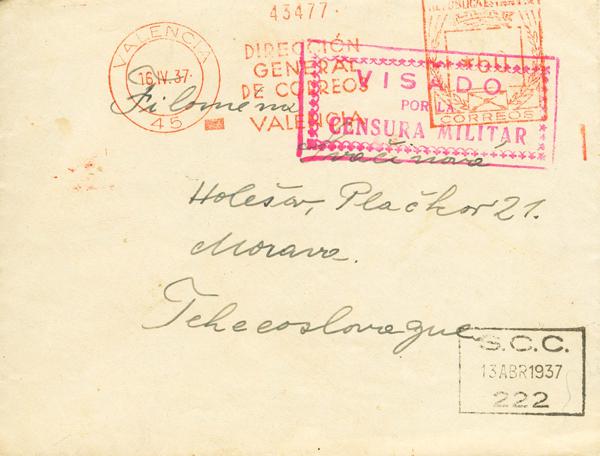 43477.
REPUBLICA ESPAÑOLA
VALENCIA
16 IV. 37.
45
DIRECCIÓN
GENERAL
DE CORREOS
VALENCIA
60
CORREOS
VISADO
POR LA
CENSURA MILITAR
Filomena
Kvačinová
Holešov, Plačkov 21.
Morava.
Tchecoslovaque
S.C.C.
13 ABR 1937
222